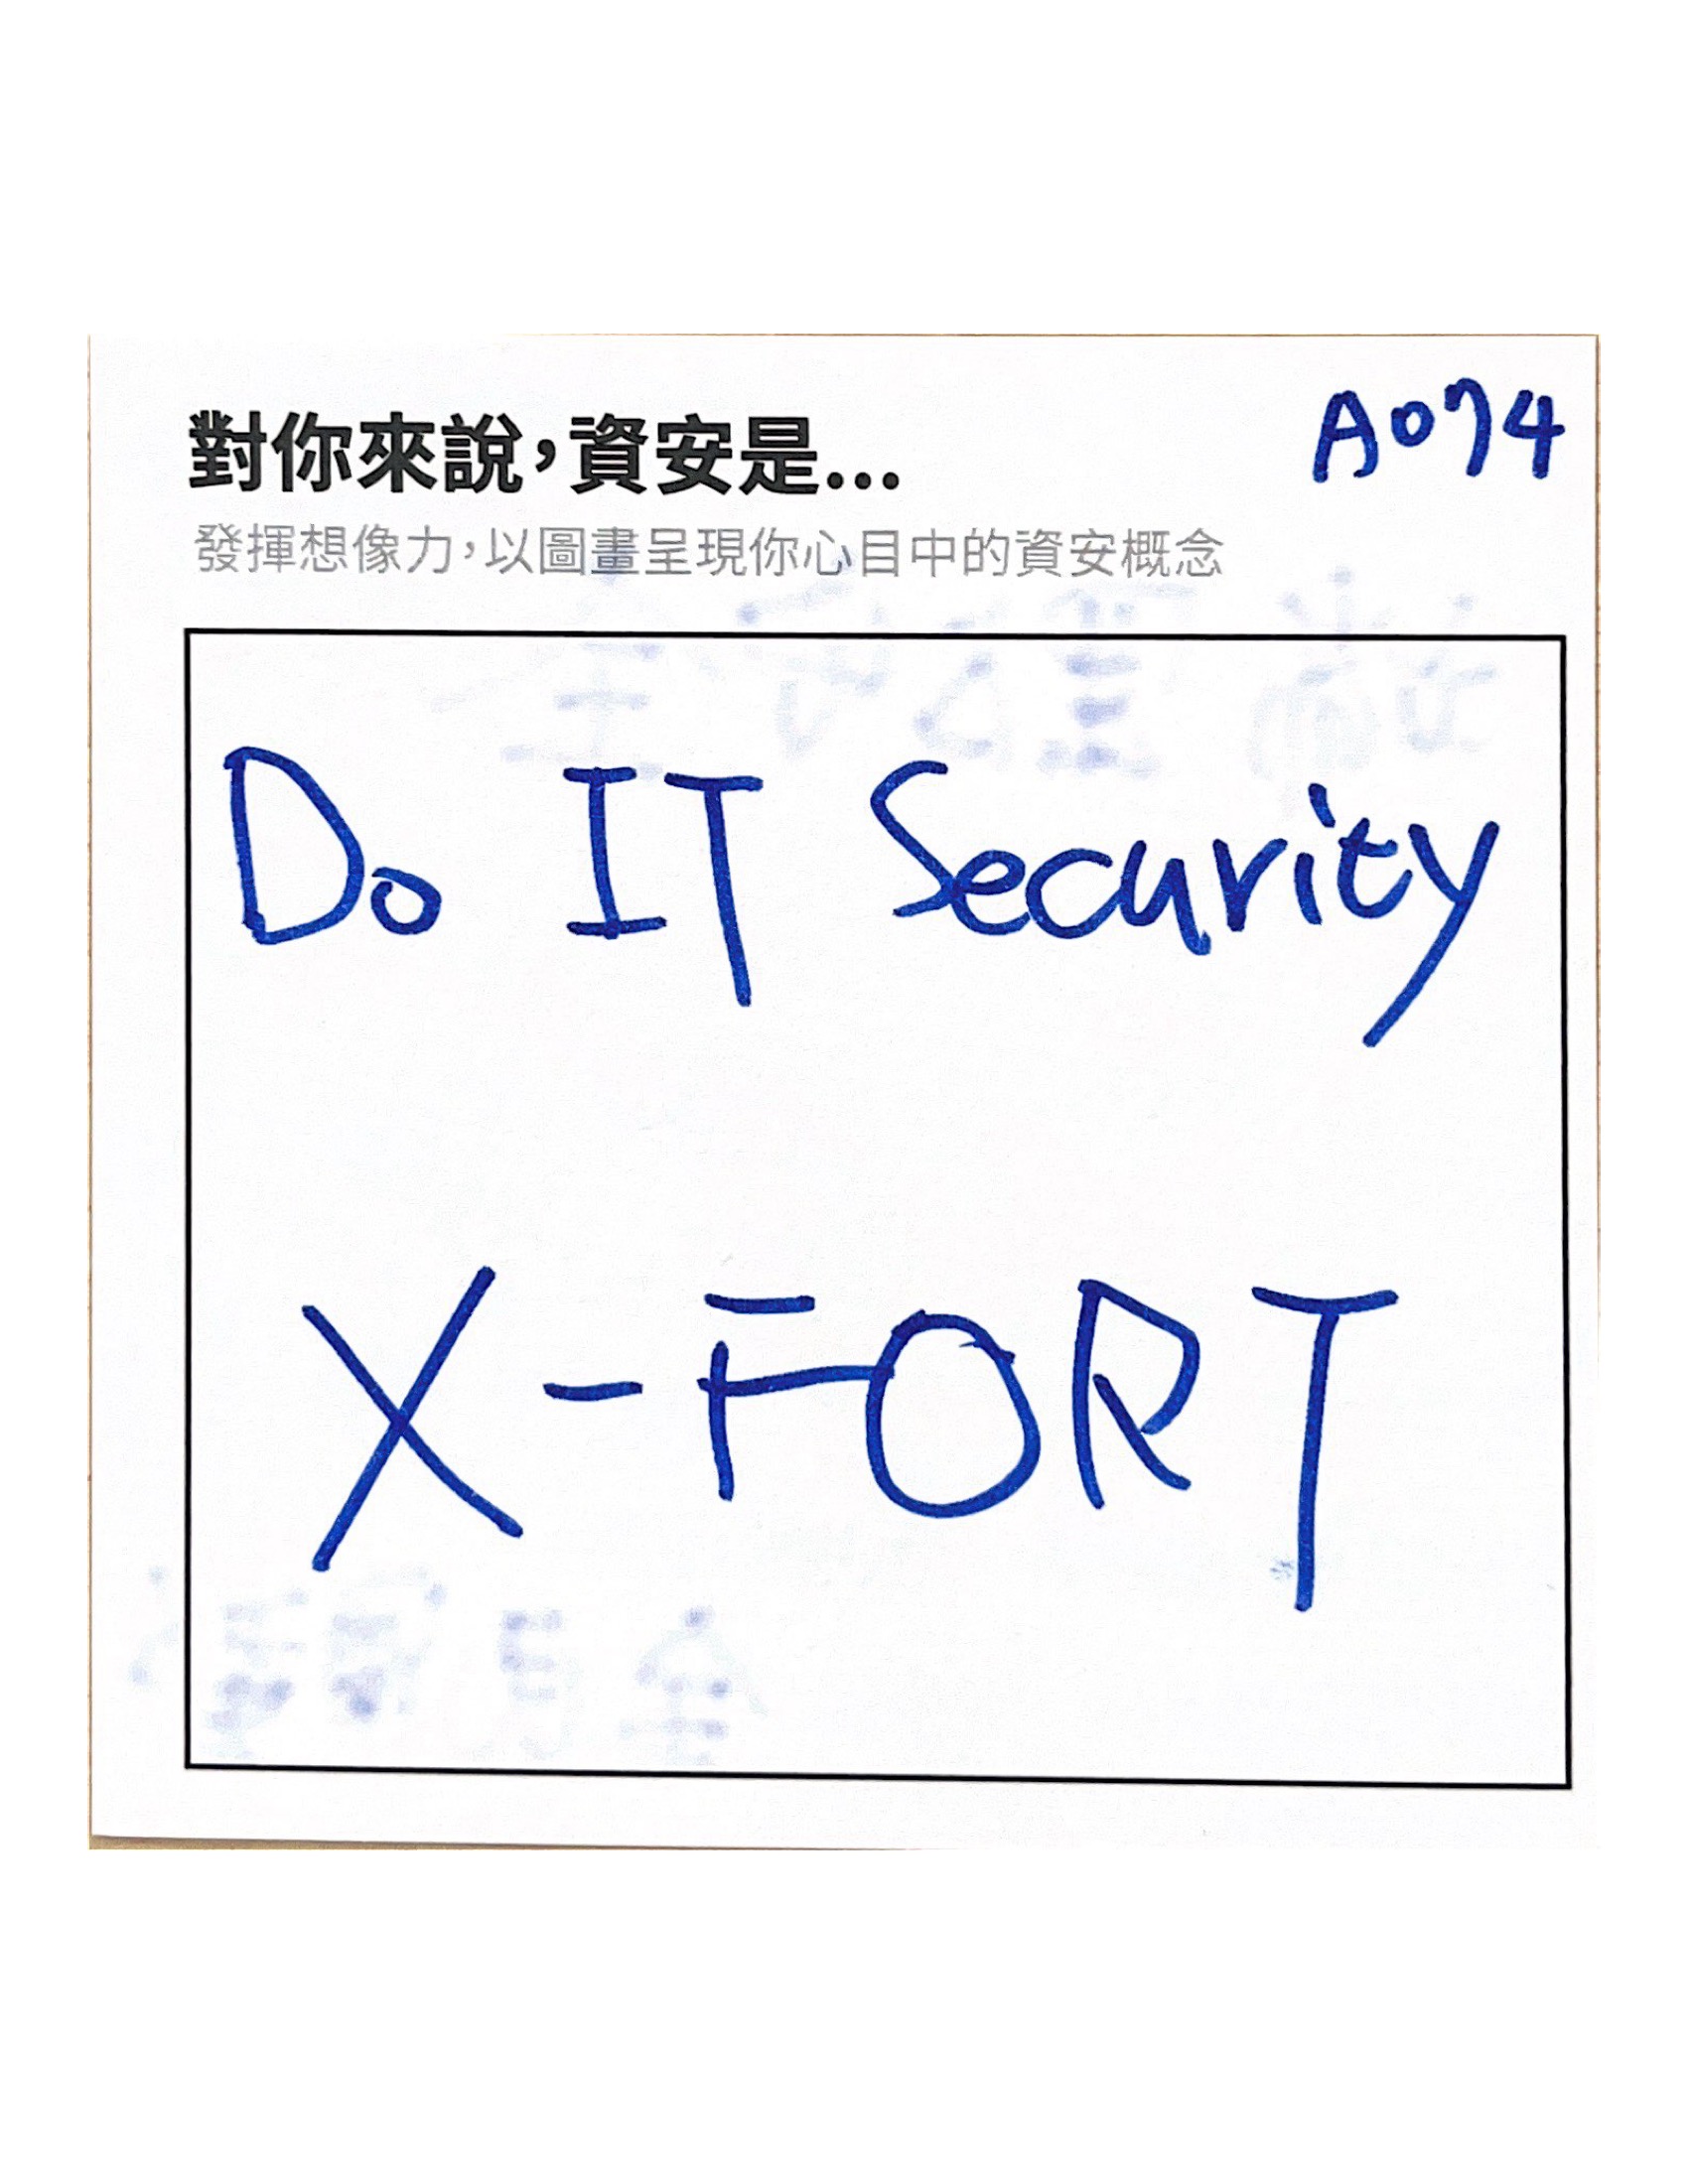 對你來說，資安是...
A074
發揮想像力，以圖畫呈現你心目中的資安概念
Do IT Security
X-FORT